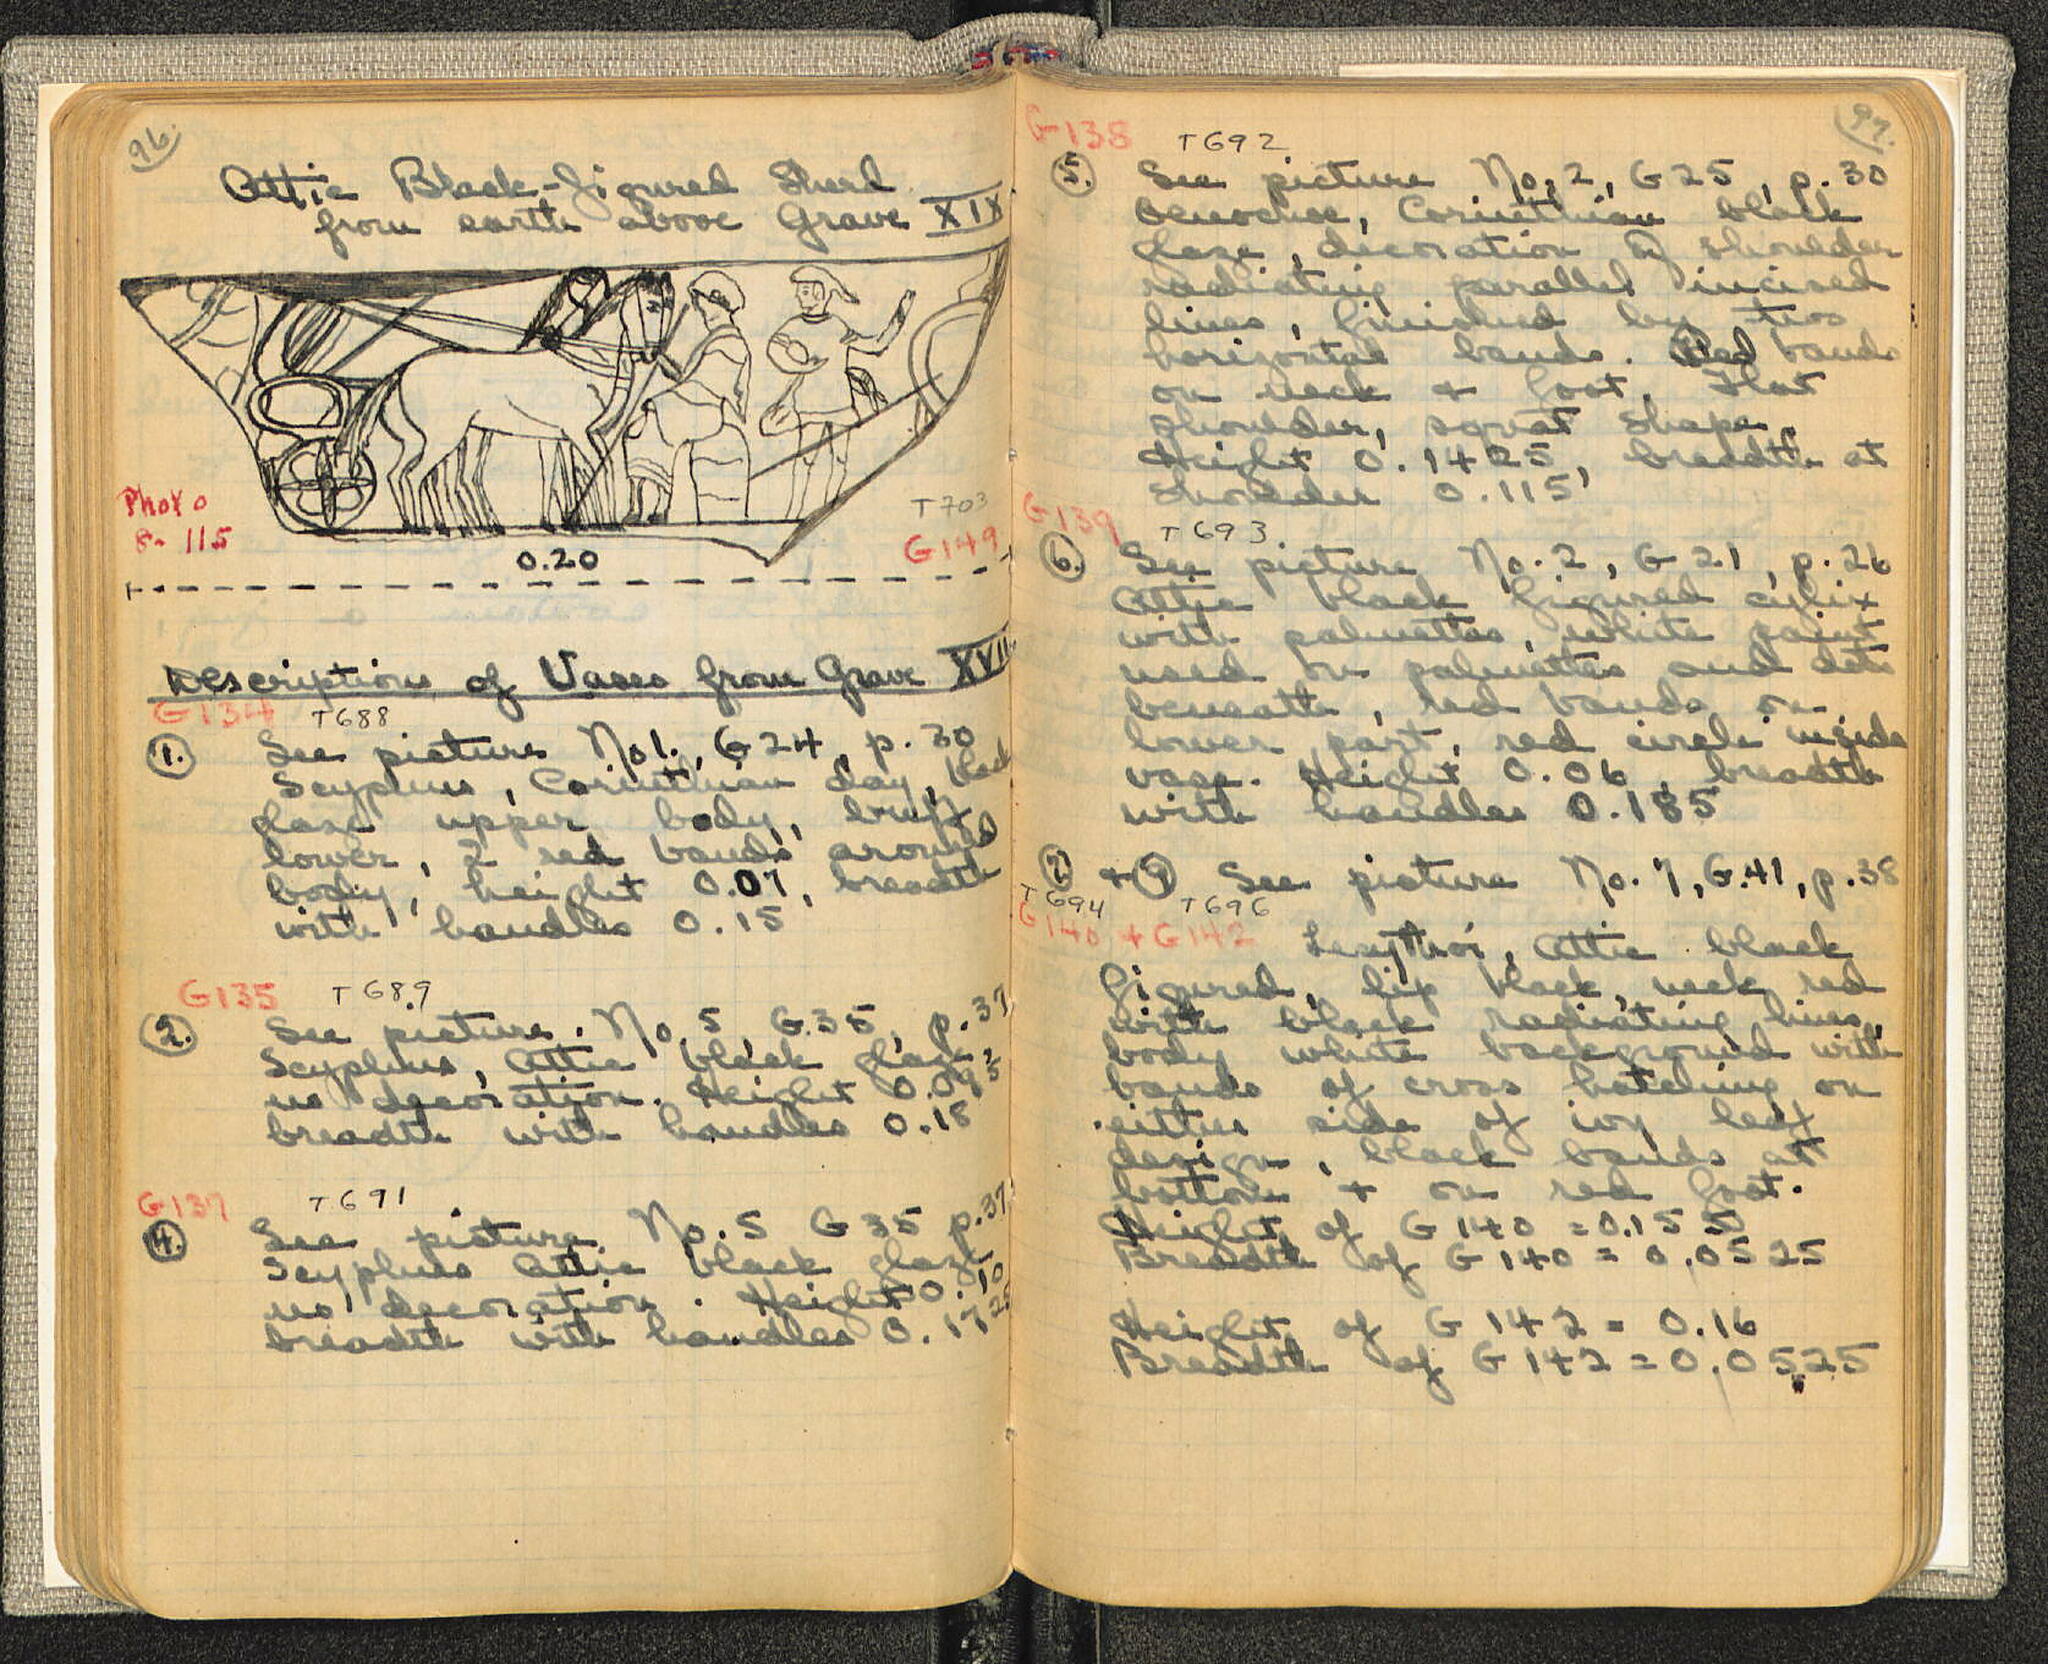 96.
Attic Black-figured Sherd
from earth above Grave XIX
Photo
8-115
T703
G149
0.20
Descriptions of Vases from Grave XVII
G134 T688
1. See picture No 1., G 24, p. 30
Scyphus, Corinthian clay, black
glaze upper body, buff
lower, 2 red bands around
body, height 0.07, breadth
with handles 0.15
G135 T689
2. See picture. No. 5, G.35, p. 37
Scyphus, Attic black glaze,
no decoration. Height 0.095
breadth with handles 0.18
G137 T691
4. See picture No. 5 G 35 p. 37
Scyphus Attic black glaze
no decoration. Height 0.10
breadth with handles 0.1725
97.
G138 T692
5. See picture No. 2, G 25, p. 30
Oenochoe, Corinthian black
glaze, decoration of shoulder
radiating parallel incised
lines, finished by two
horizontal bands. Red bands
on neck + foot. Flat
shoulder, squat shape.
Height 0.1425, breadth at
shoulder 0.115
G139 T693
6. See picture No. 2, G 21, p. 26
Attic black figured cylix
with palmettes, white paint
used on palmettes and dots
beneath, red bands on
lower part, red circle inside
vase. Height 0.06, breadth
with handles 0.185
7. + 9. See picture No. 7, G.41, p. 38
T694 T696
G140 + G142 Lecythoi, Attic black
figured, lip black, neck red
with black radiating lines,
body white background with
bands of cross hatching on
either side of ivy leaf
design, black bands at
bottom + on red foot.
Height of G 140 = 0.155
Breadth of G 140 = 0.0525
Height of G 142 = 0.16
Breadth of G 142 = 0.0525